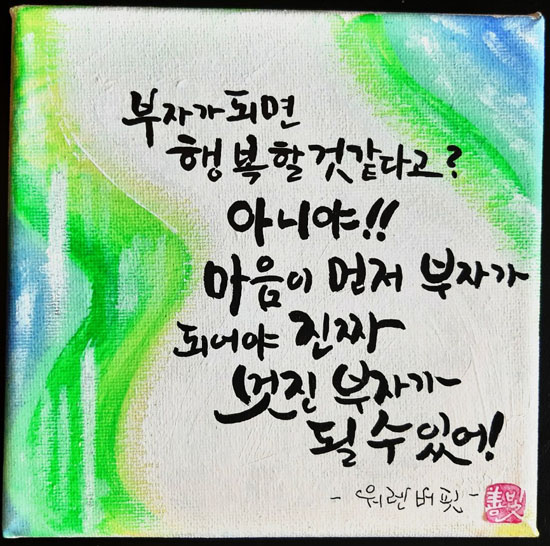 부자가 되면
행복할것같다고?
아니야!!
마음이 먼저 부자가
되어야 진짜
멋진 부자가
될 수 있어!
- 워렌버핏 -
善빛